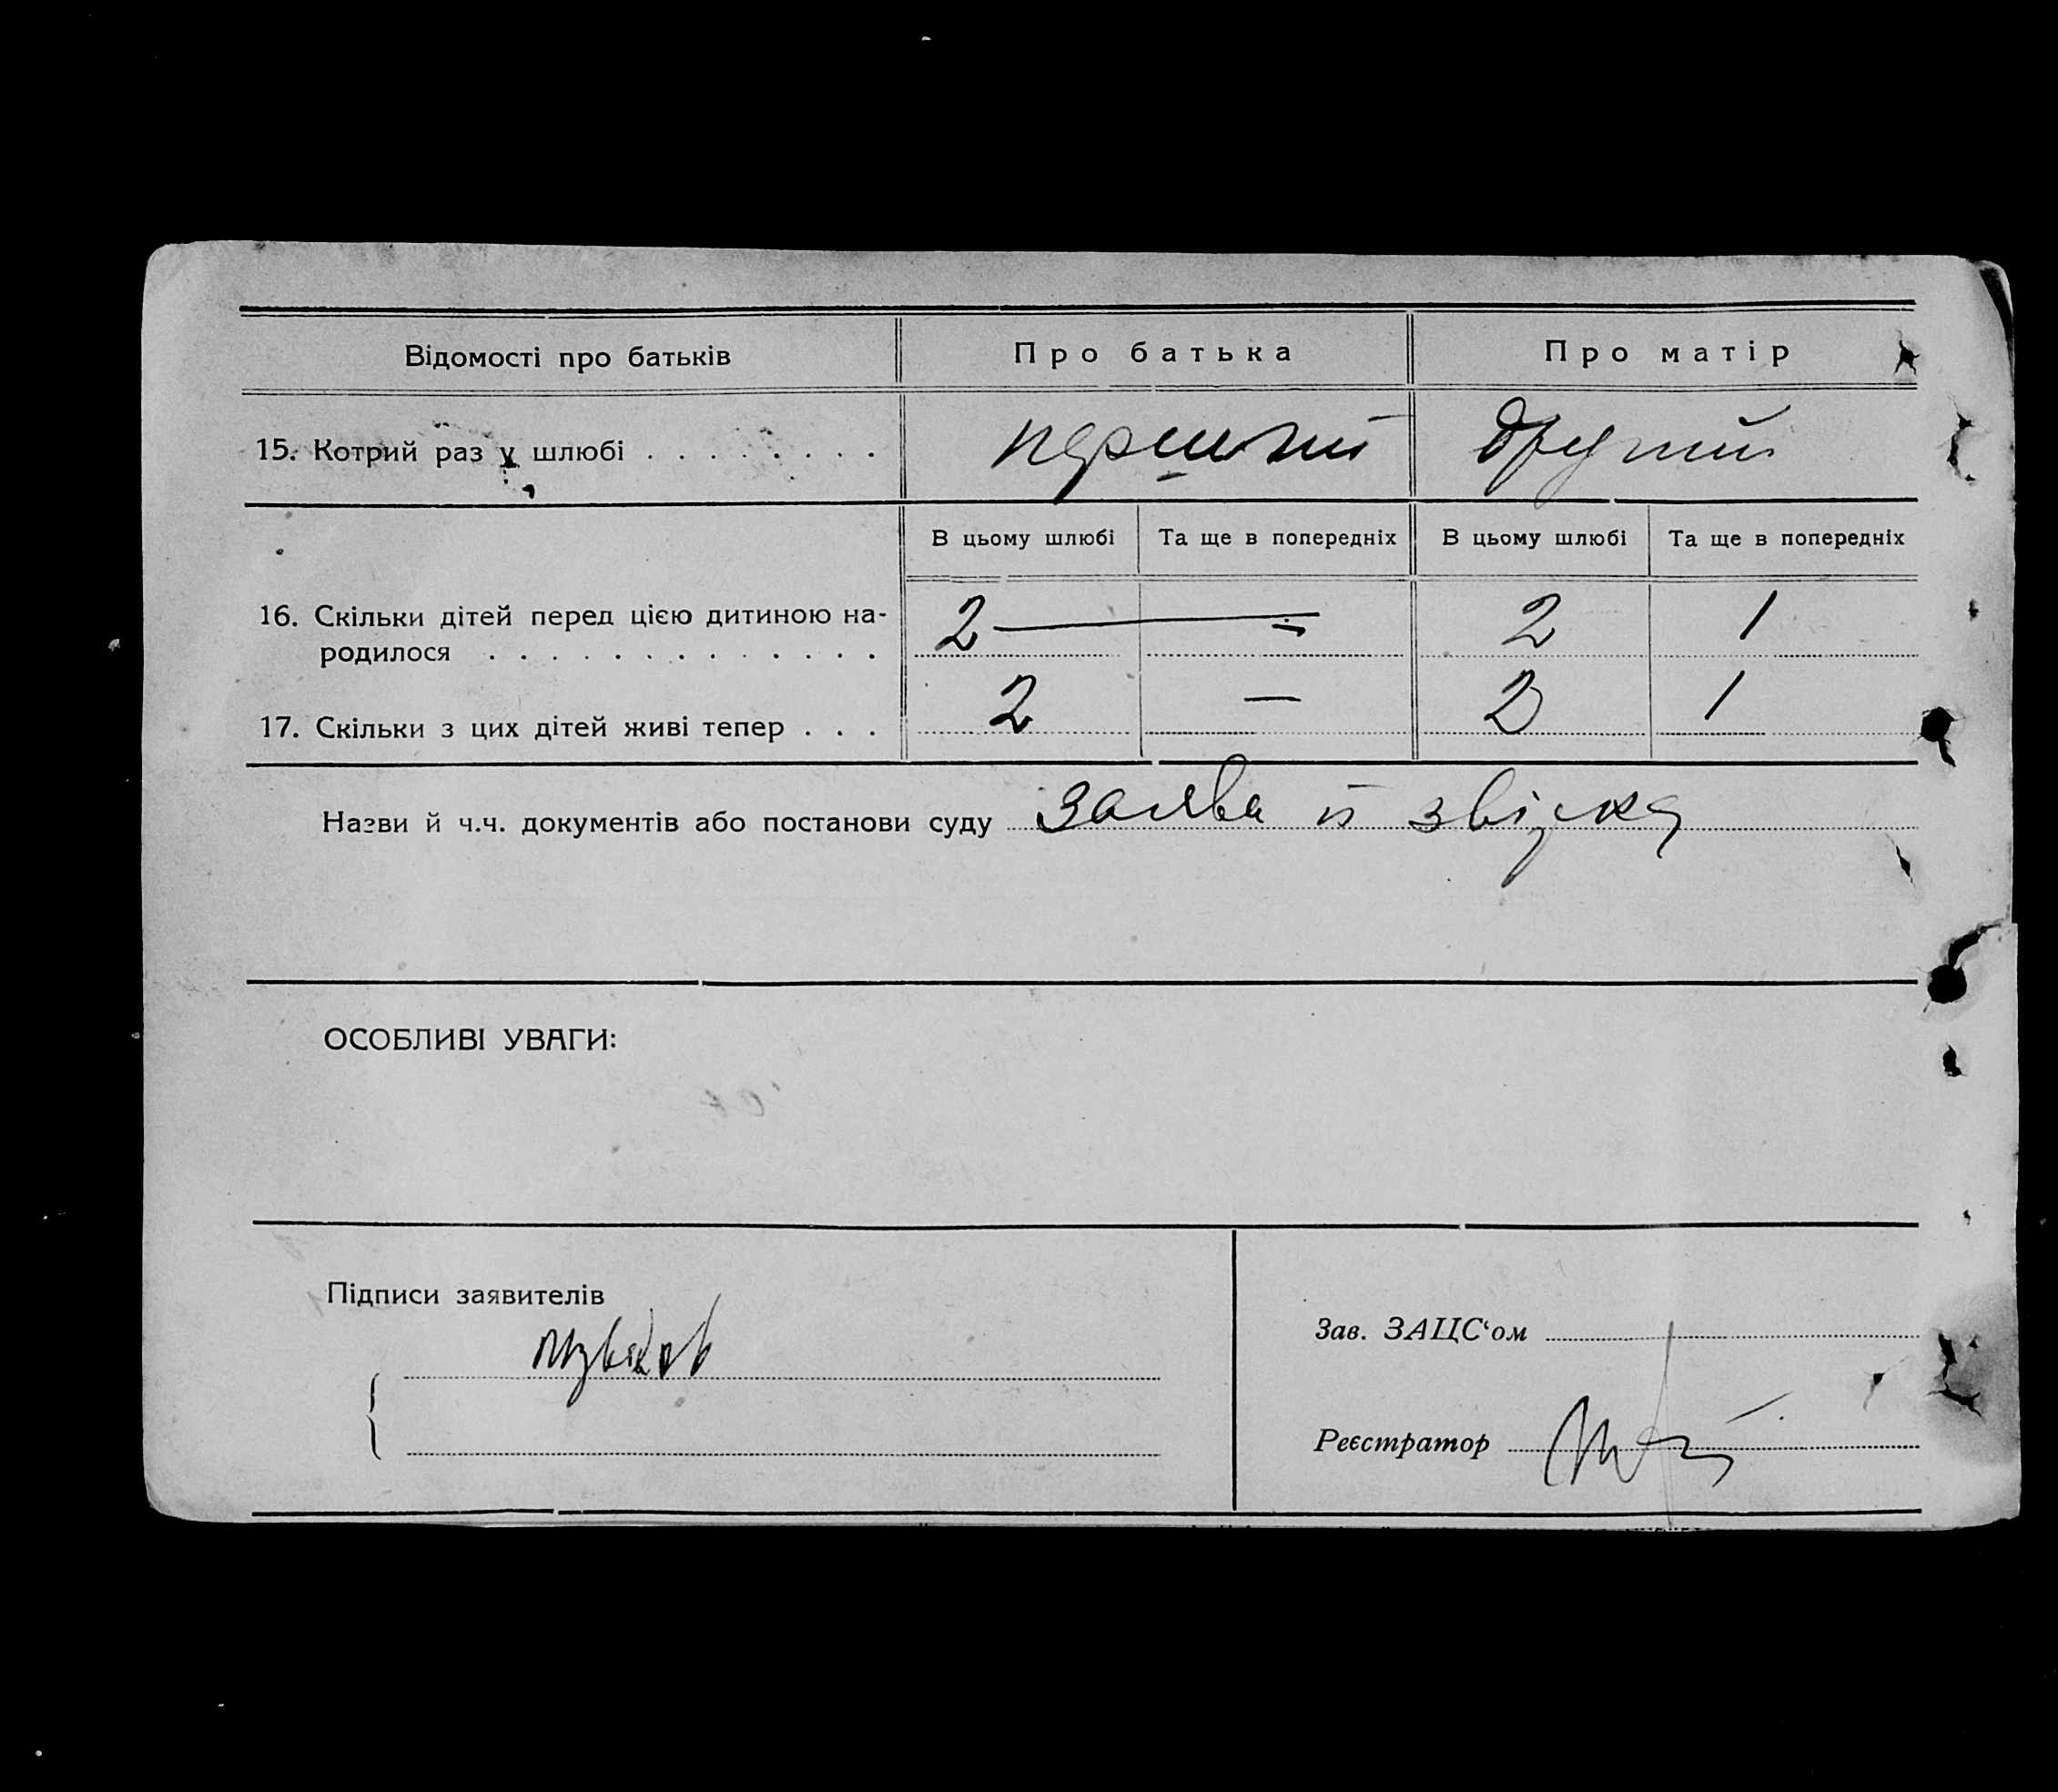 Відомості про батьків Про батька Про матір
15. Котрий раз у шлюбі . . . . . . . . перший другий
В цьому шлюбі Та ще в попередніх В цьому шлюбі Та ще в попередніх
16. Скільки дітей перед цією дитиною на-
родилося . . . . . . . . . . . . . 2 — 2 1
17. Скільки з цих дітей живі тепер . . . 2 — 2 1
Назви й ч.ч. документів або постанови суду заява й звізка
ОСОБЛИВІ УВАГИ:
Підписи заявителів
Зав. ЗАЦС‘ом
Реєстратор